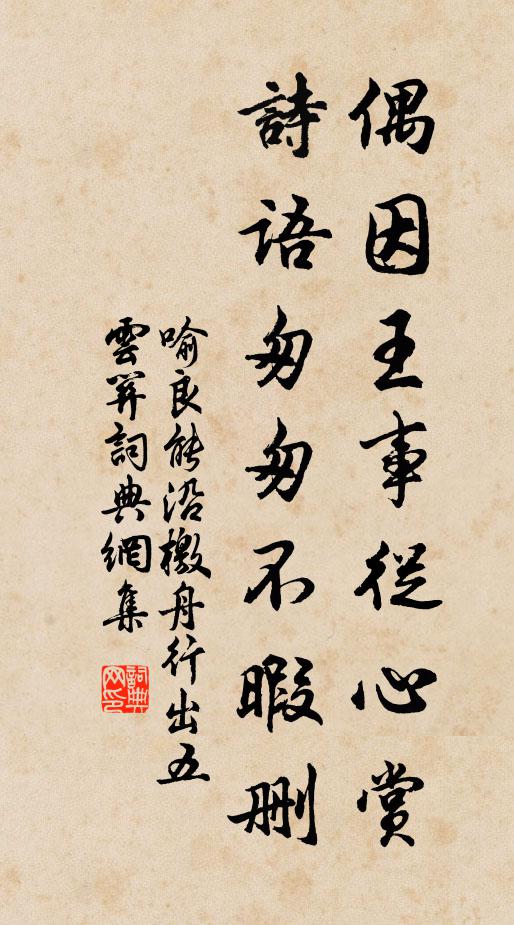 偶因王事從心賞
詩語匆匆不暇刪
喻良能沿檄舟行出五
雲羿詞典網集
詞典
网印